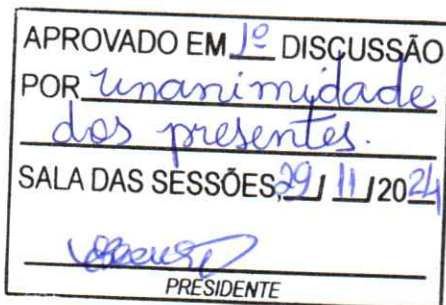 APROVADO EM 1º DISCUSSÃO
POR unanimidade
dos presentes.
SALA DAS SESSÕES, 29/11/2024
PRESIDENTE